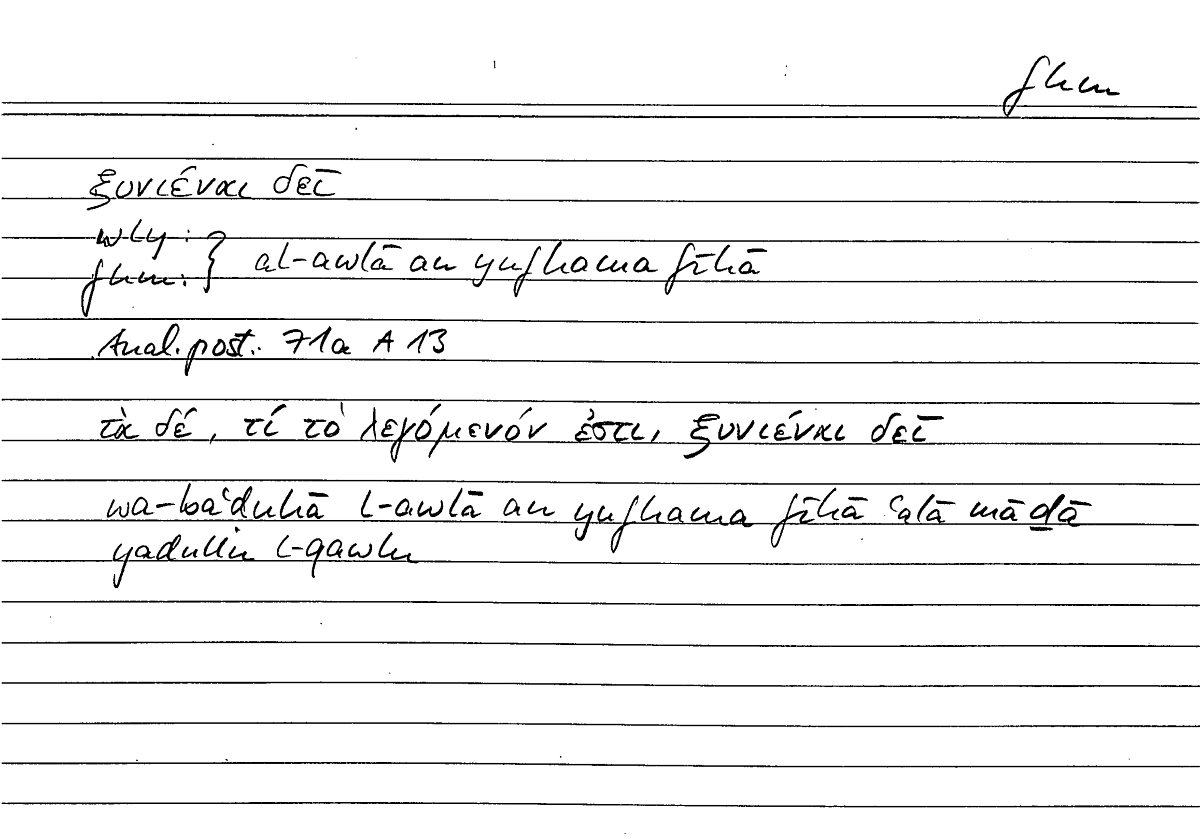 fhm
ξυνιέναι δεῖ
wly: } al-awlā an yufhama fīhā
fhm:
Anal. post. 71a A 13
τὰ δέ, τί τὸ λεγόμενόν ἐστι, ξυνιέναι δεῖ
wa-baʿduhā l-awlā an yufhama fīhā ʿalā māḏā
yadullu l-qawlu